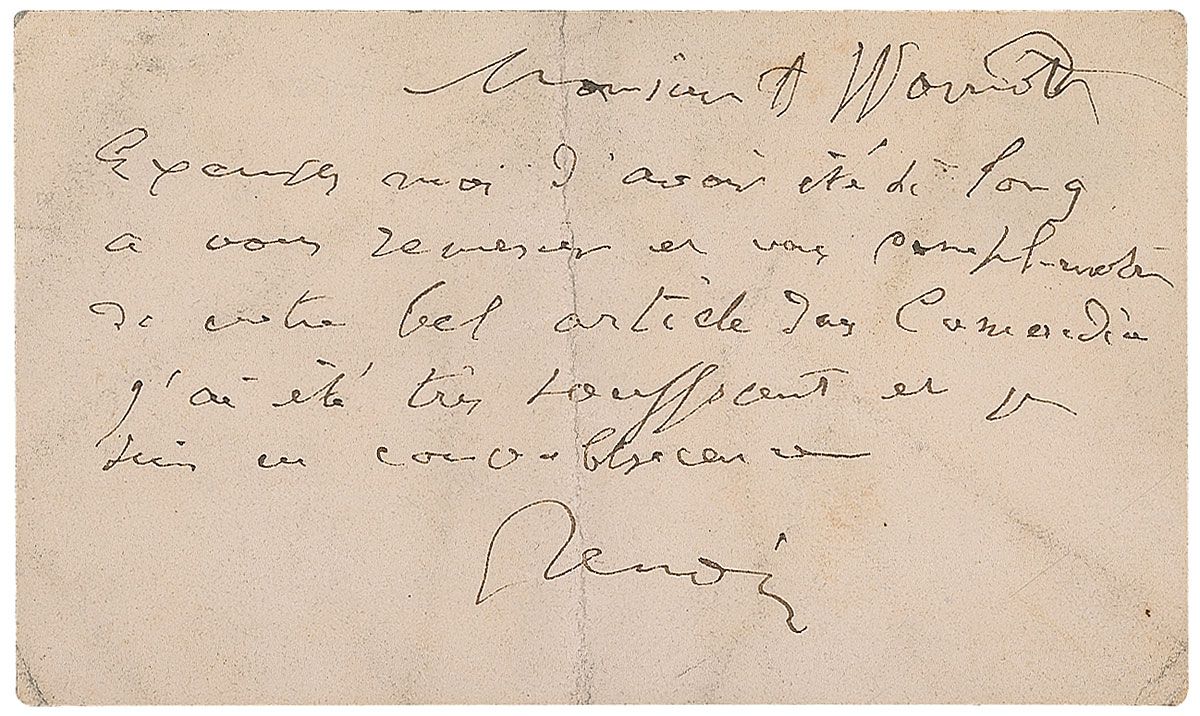 Monsieur A Warnod
Excusez moi d'avoir été si long
a vous remercier et vous complimenter
de votre bel article dans Comoedia
j'ai été très souffrant et je
suis en convalescence
Renoir